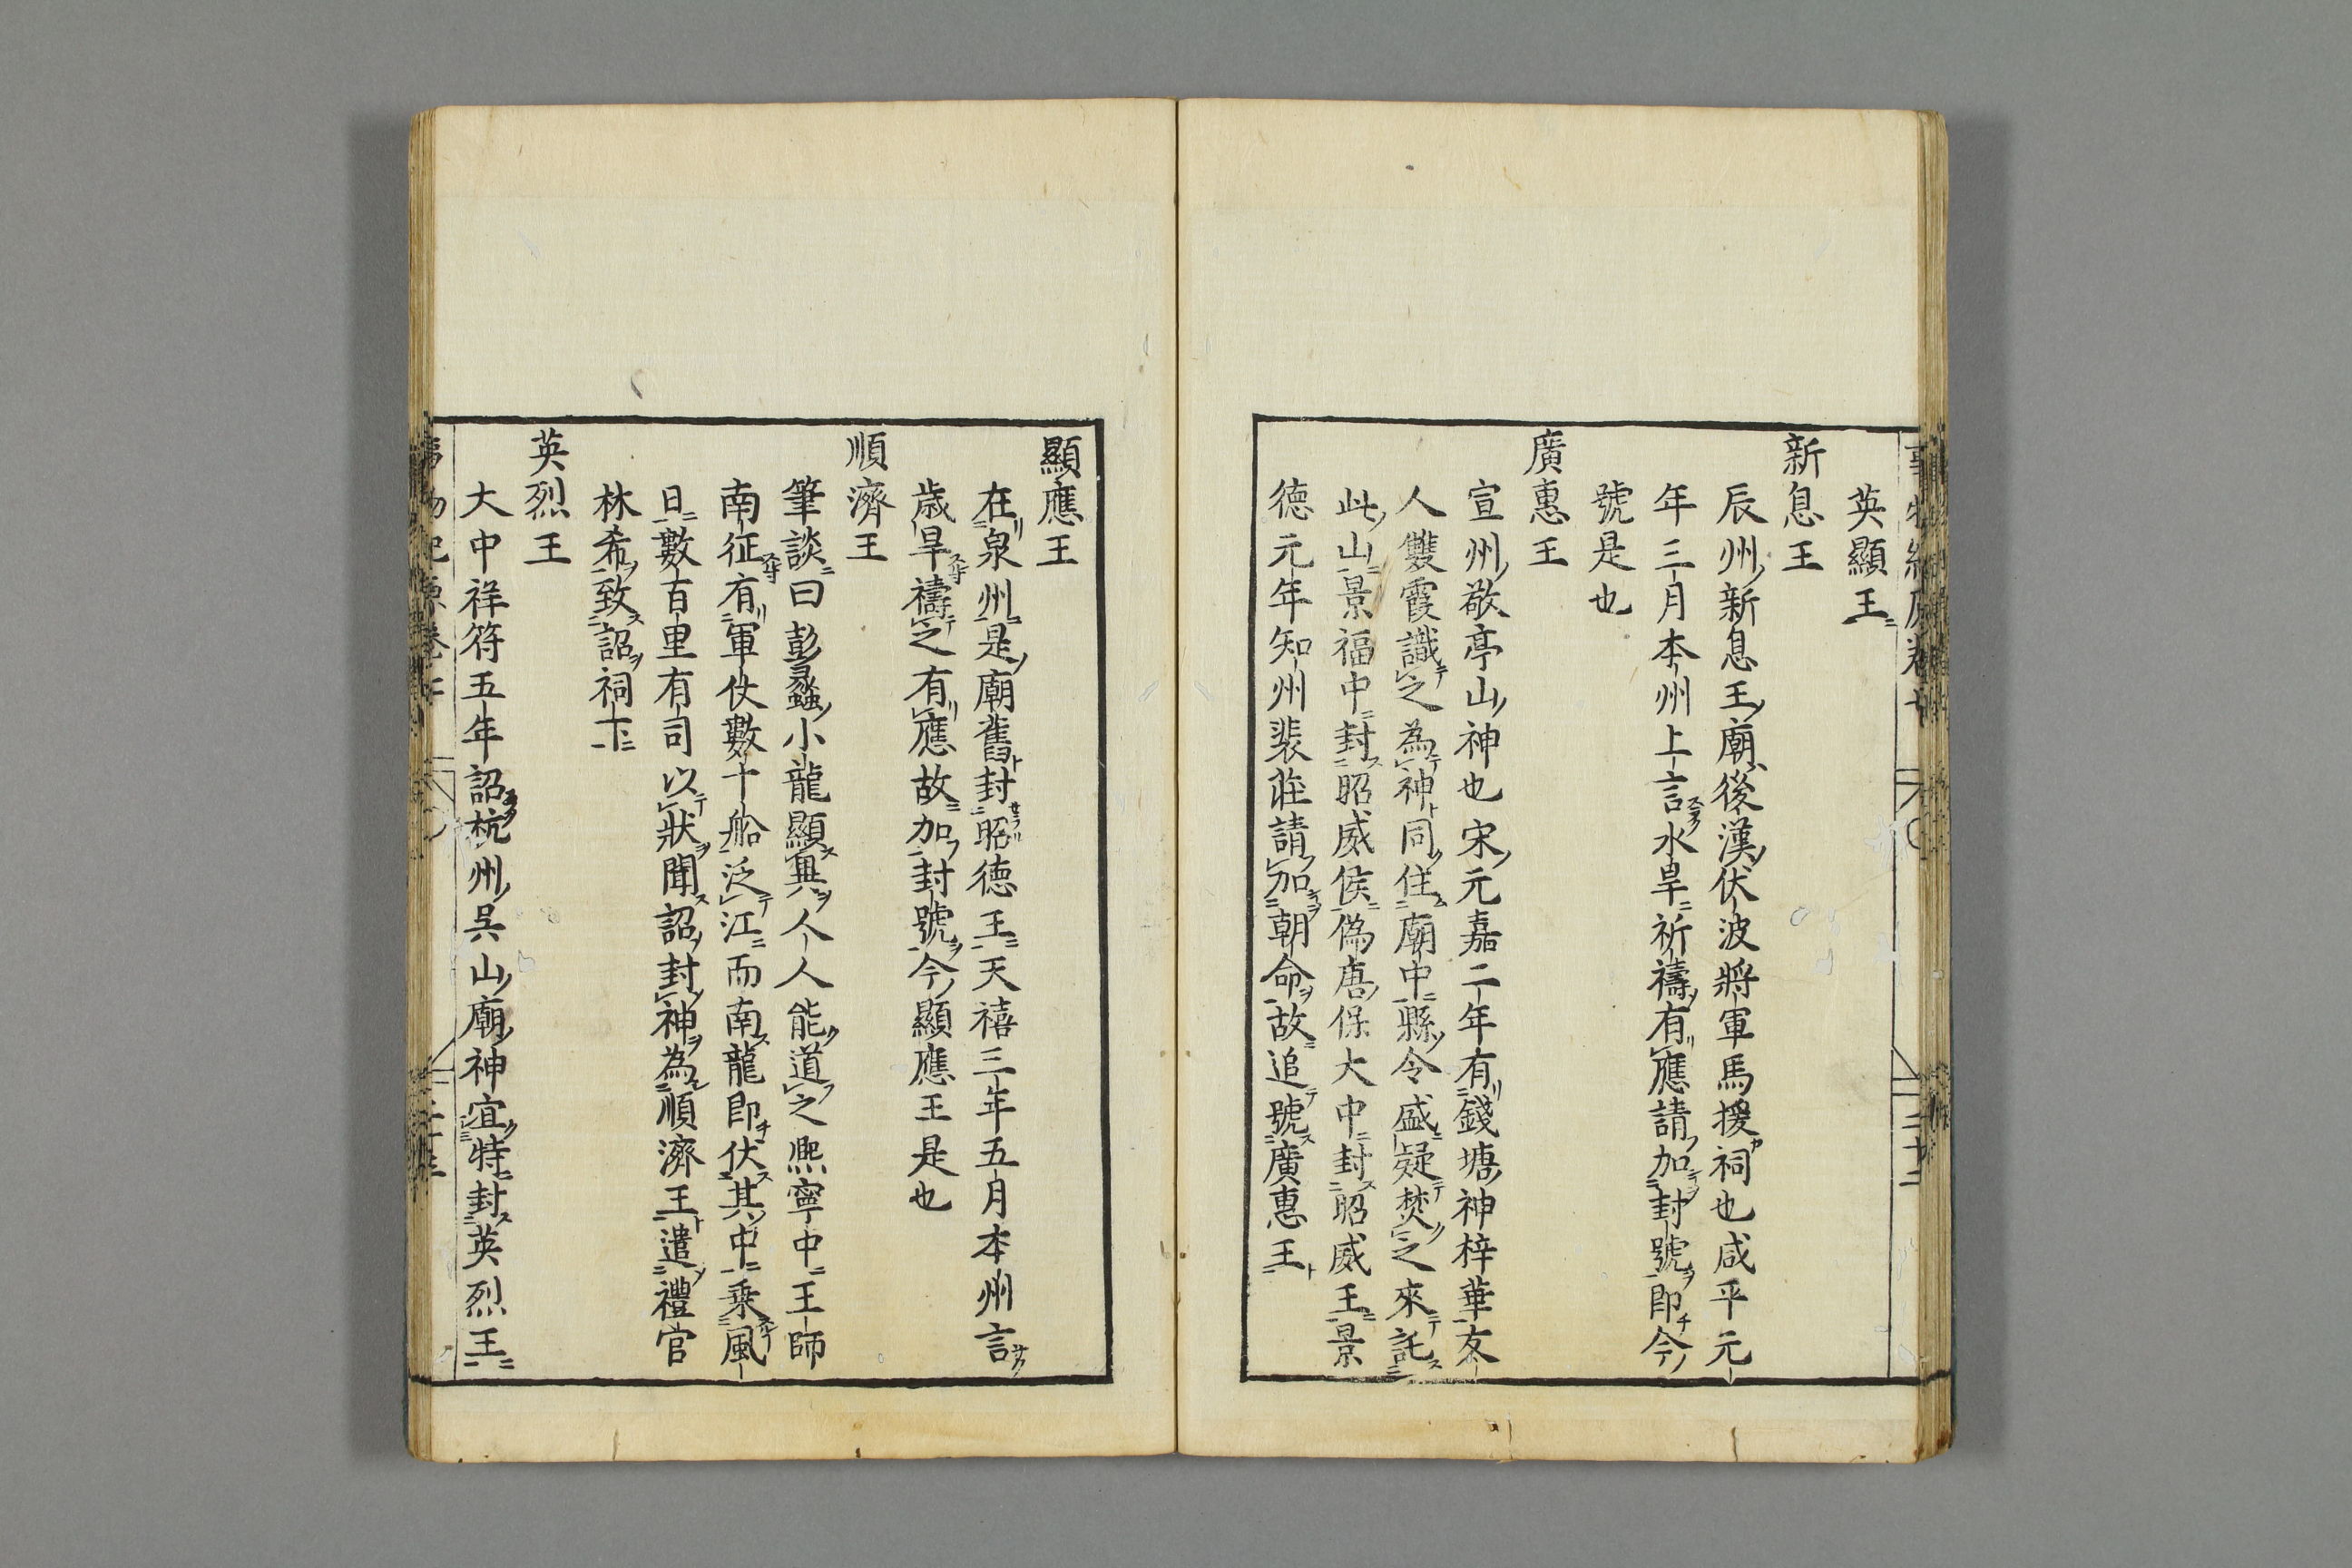 英顯王
新息王
辰州新息王廟後漢伏波將軍馬援祠也咸平元
年三月本州上言水旱祈禱有應請加封號即今
號是也
廣惠王
宣州敬亭山神也宋元嘉二年有錢塘神梓華友
人雙霞識之為神同住廟中縣令盛疑焚之來託
此山景福中封昭威侯偽唐保大中封昭威王景
德元年知州裴莊請加朝命故追號廣惠王
顯應王
在泉州是廟舊封昭德王天禧三年五月本州言
歲旱禱之有應故加封號今顯應王是也
順濟王
筆談曰彭蠡小龍顯異人人能道之熈寧中王師
南征有軍仗數十船泛江而南龍即伏其中乗風
日數百里有司以狀聞詔封神為順濟王遣禮官
林希致詔祠下
英烈王
大中祥符五年詔杭州呉山廟神宜特封英烈王